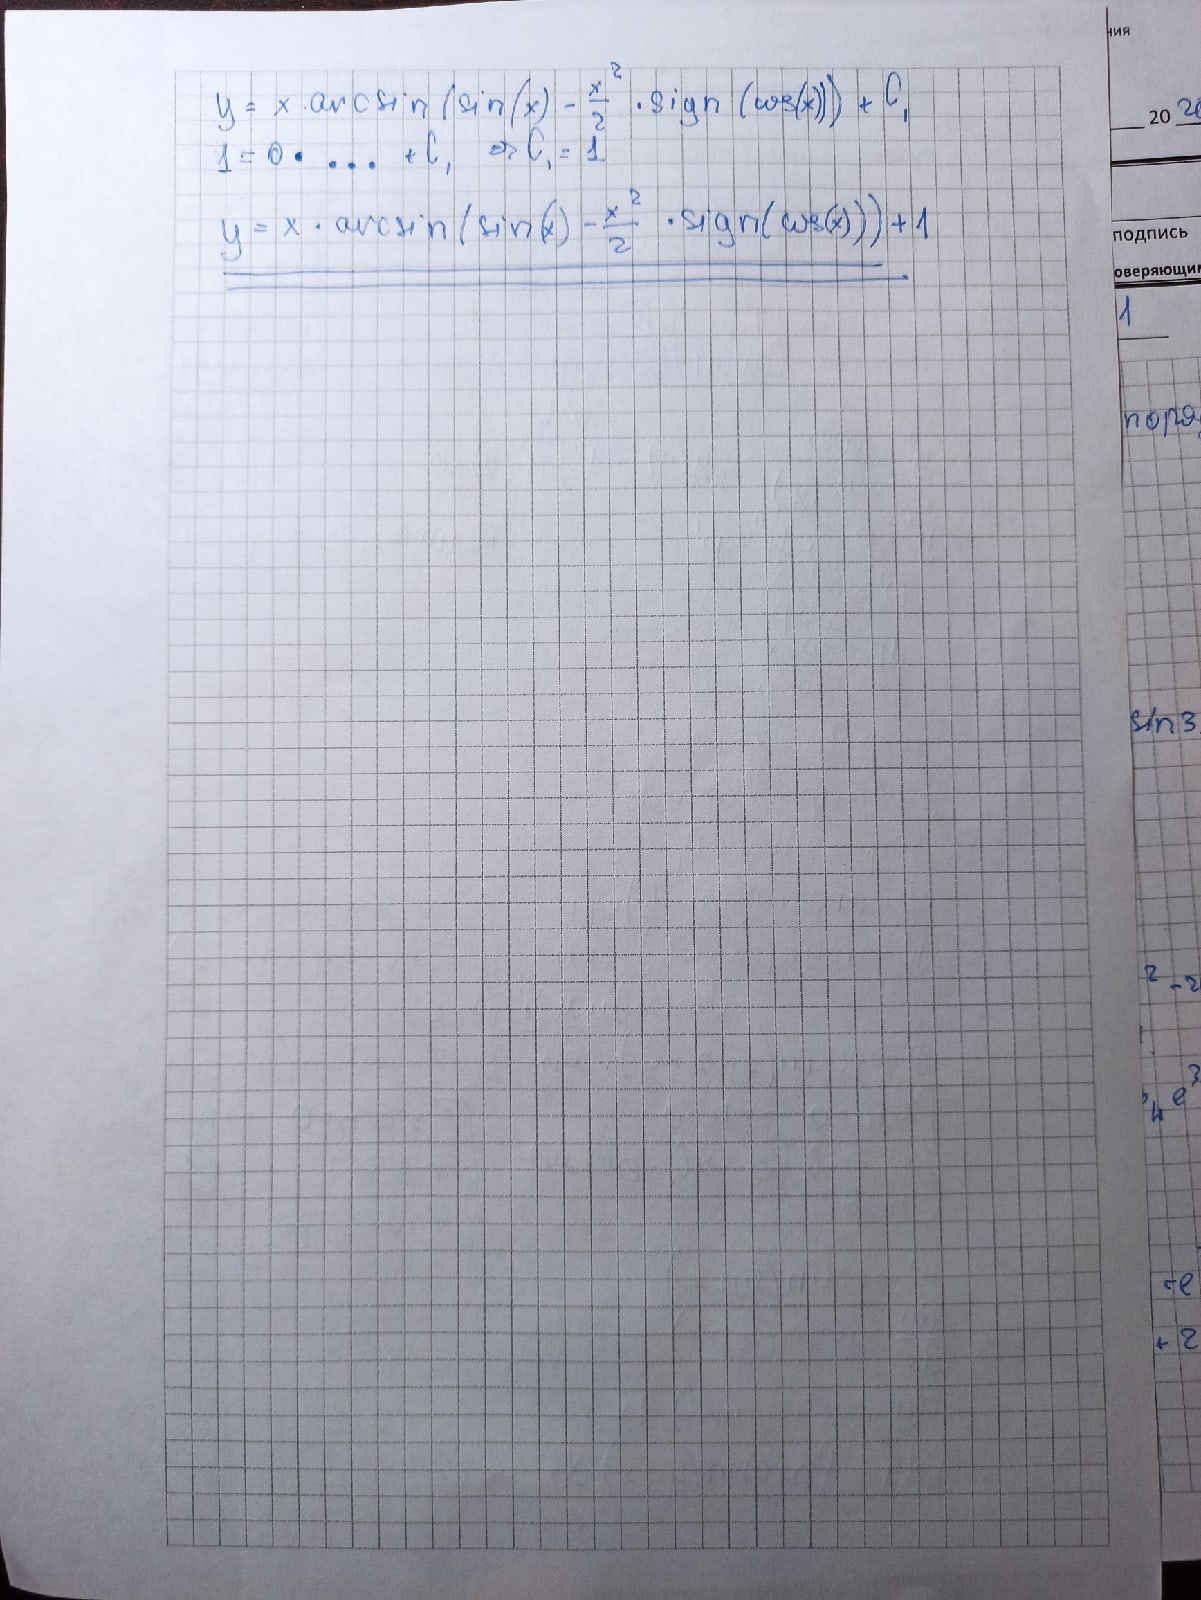 y = x · arcsin(sin(x) - x²/2 · sign(cos(x))) + C₁
1 = 0 · ... + C₁ => C₁ = 1
y = x · arcsin(sin(x) - x²/2 · sign(cos(x))) + 1
ния
20 20
подпись
оверяющим
1
поря
sin3
² - 2
e³
= e
+ 2